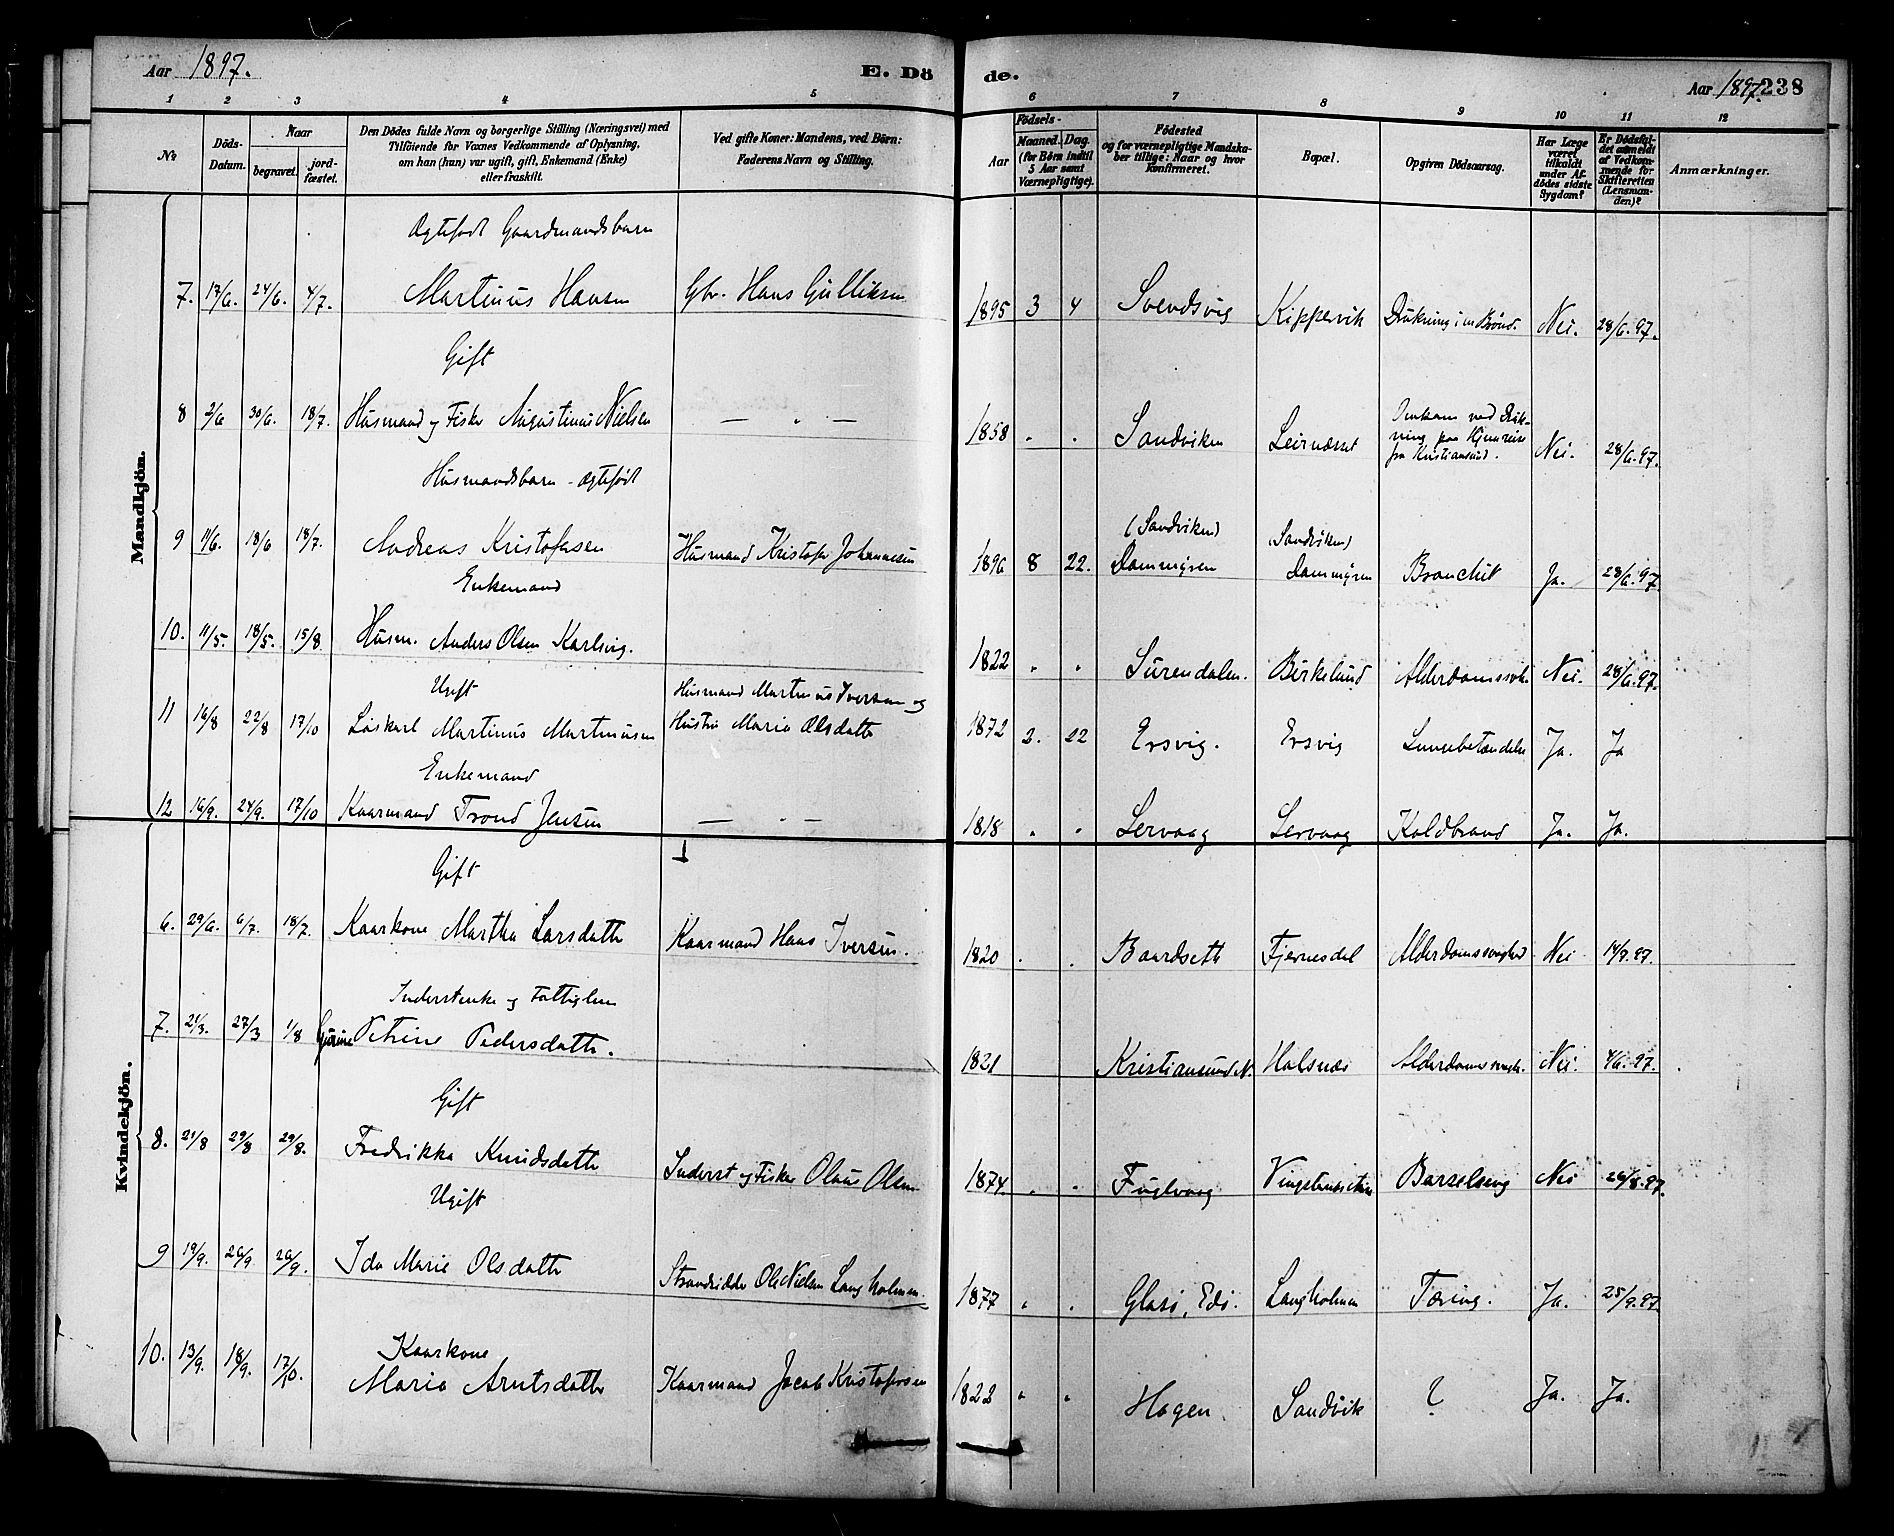 Aar 1897.
E. Döde.
Aar 1897.
238
1 2 3 4 5 6 7 8 9 10 11 12
No
Döds-Datum.
Naar
begravet.
jord-fæstet.
Den Dödes fulde Navn og borgerlige Stilling (Næringsvei) med
Tilföiende for Voxnes Vedkommende af Oplysning,
om han (hun) var ugift, gift, Enkemand (Enke)
eller fraskilt.
Ved gifte Koner: Mandens, ved Börn:
Faderens Navn og Stilling.
Födsels-
Aar
Maaned. Dag.
(for Börn indtil
5 Aar samt
Værnepligtige).
Födested
og for værnepligtige Mandska-
ber tillige: Naar og hvor
konfirmeret.
Bopæl.
Opgiven Dödsaarsag.
Har Læge
været
tilkaldt
under Af-
dödes sidste
Sygdom?
Er Dödsfal-
det anmeldt
af Vedkom-
mende for
Skifteretten
(Lensman-
den)?
Anmærkninger.
Mandkjön.
Ægtefødt Gaardmandsbarn
7. 17/6. 24/6. 4/7. Martinus Hansen Gbr. Hans Gulliksen 1895 3 4 Svendsvig Kippervik Drukning i en Brønd. Nei. 28/6. 97.
Gift
8 2/6 30/6. 18/7. Husmand og Fisker Augustinus Nielsen — " — 1858 " " Sandviken Leirnæsset Omkom ved Druk-
ning paa Hjemreise
fra Kristiansund. Nei. 28/6. 97.
Husmandsbarn - ægtefødt
9 11/6. 18/6 18/7. Andreas Kristofersen Husmand Kristofer Johannesen 1896 8 22. (Sandviken)
Dammyren (Sandviken)
Dammyren Bronchit Ja. 28/6. 97.
Enkemand
10. 11/5. 18/5. 15/8. Husm. Anders Olsen Karlsvig. 1822 " " Surendalen. Birkelund Alderdomssvh. Nei. 28/6. 97.
Ugift
11 16/8 22/8 17/10 Løskarl Martinus Martinusen Husmand Martinus Iversen og
Hustru Maria Olsdatter 1872 2. 22 Ersvig. Ersvig Lungebetændelse Ja. Ja
Enkemand
12 16/9. 24/9. 17/10 Kaarmand Trond Jensen — " — 1818 " " Lervaag Lervaag Koldbrand Ja. Ja.
Kvindekjön.
Gift
6. 29/6. 6/7. 18/7. Kaarkone Martha Larsdatter Kaarmand Hans Iversen. 1820 " " Baardseth Fjernesdal Alderdomssvaghed Nei 14/9. 97.
Inderstenke og Fattiglem
7. 21/3. 27/3 1/8 Gurine Petrine Pedersdatter. 1821 Kristiansund N. Holsnæs Alderdomssvagh. Nei. 4/6. 97.
Gift
8. 21/8 29/8 29/8. Fredrikke Knudsdatter Inderst og Fisker Olaus Olsen 1874. " " Fuglvaag Barselseng Nei 26/8. 97.
Ugift
9 19/9. 26/9. 26/9. Ida Marie Olsdatter Strandsidder Ole Nielsen Langholmen. 1877 " " Glasø, Edø. Langholmen Tæring. Ja. 25/9. 97
Kaarkone
10. 13/9. 18/9. 17/10. Maria Arntsdatter Kaarmand Jacob Kristofersen 1822 " " Hagen. Sandvik ? Ja. Ja.